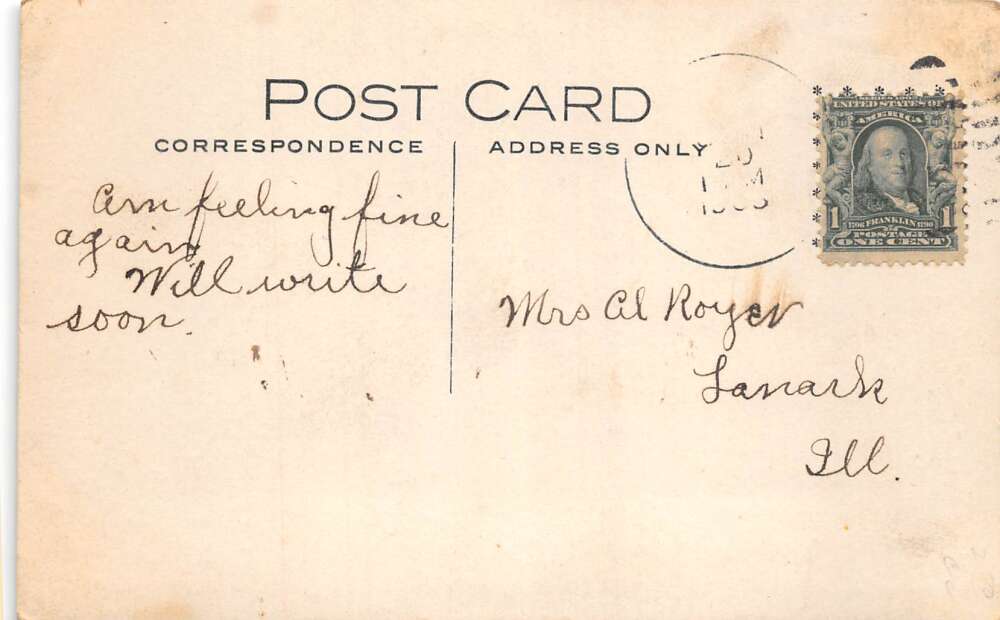 POST CARD
CORRESPONDENCE
ADDRESS ONLY
Am feeling fine
again
Will write
soon.
Mrs Al Royer
Lanark
Ill.
20
UNITED STATES OF
AMERICA
1 1706 FRANKLIN 1790 1
POSTAGE
ONE CENT